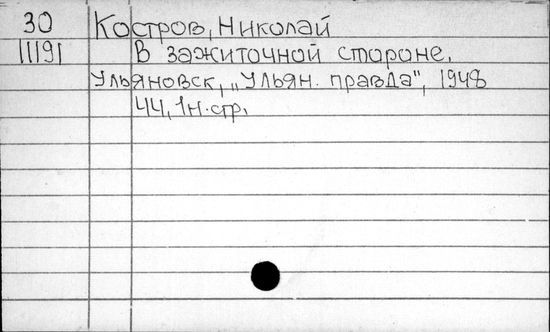 30 Костров, Николай
11191 В зажиточной стороне.
Ульяновск, „Ульян. правда", 1948
44, 1 н. стр.